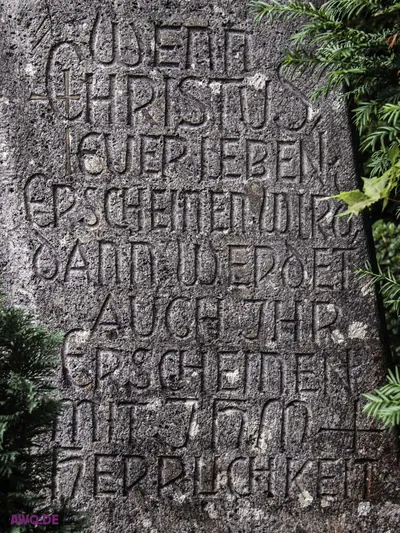 WENN
CHRISTUS,
EUER LEBEN,
ERSCHEINEN WIRD
DANN WERDET
AUCH IHR
ERSCHEINEN
MIT IHM +
HERRLICHKEIT
AWO.DE